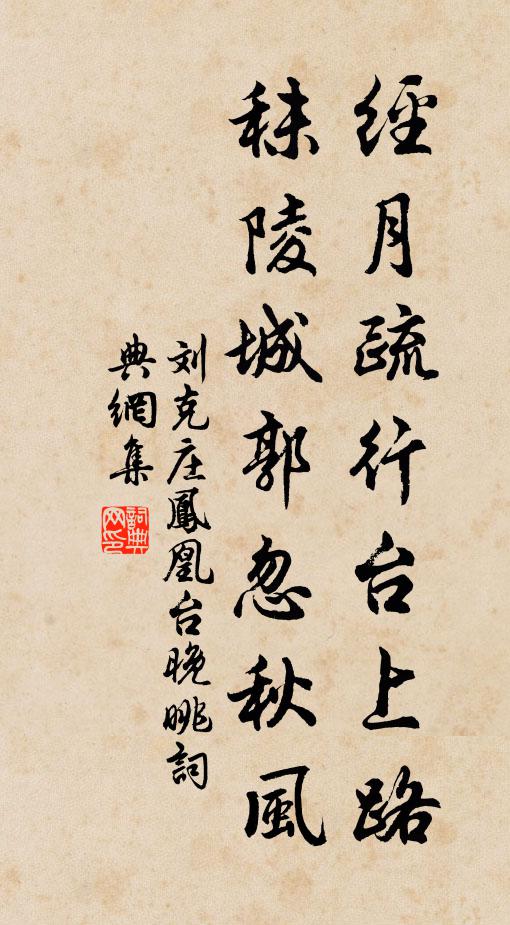 經月疏行台上路
秣陵城郭忽秋風
刘克庄鳳凰台晚眺詞
典網集
詞典
网印